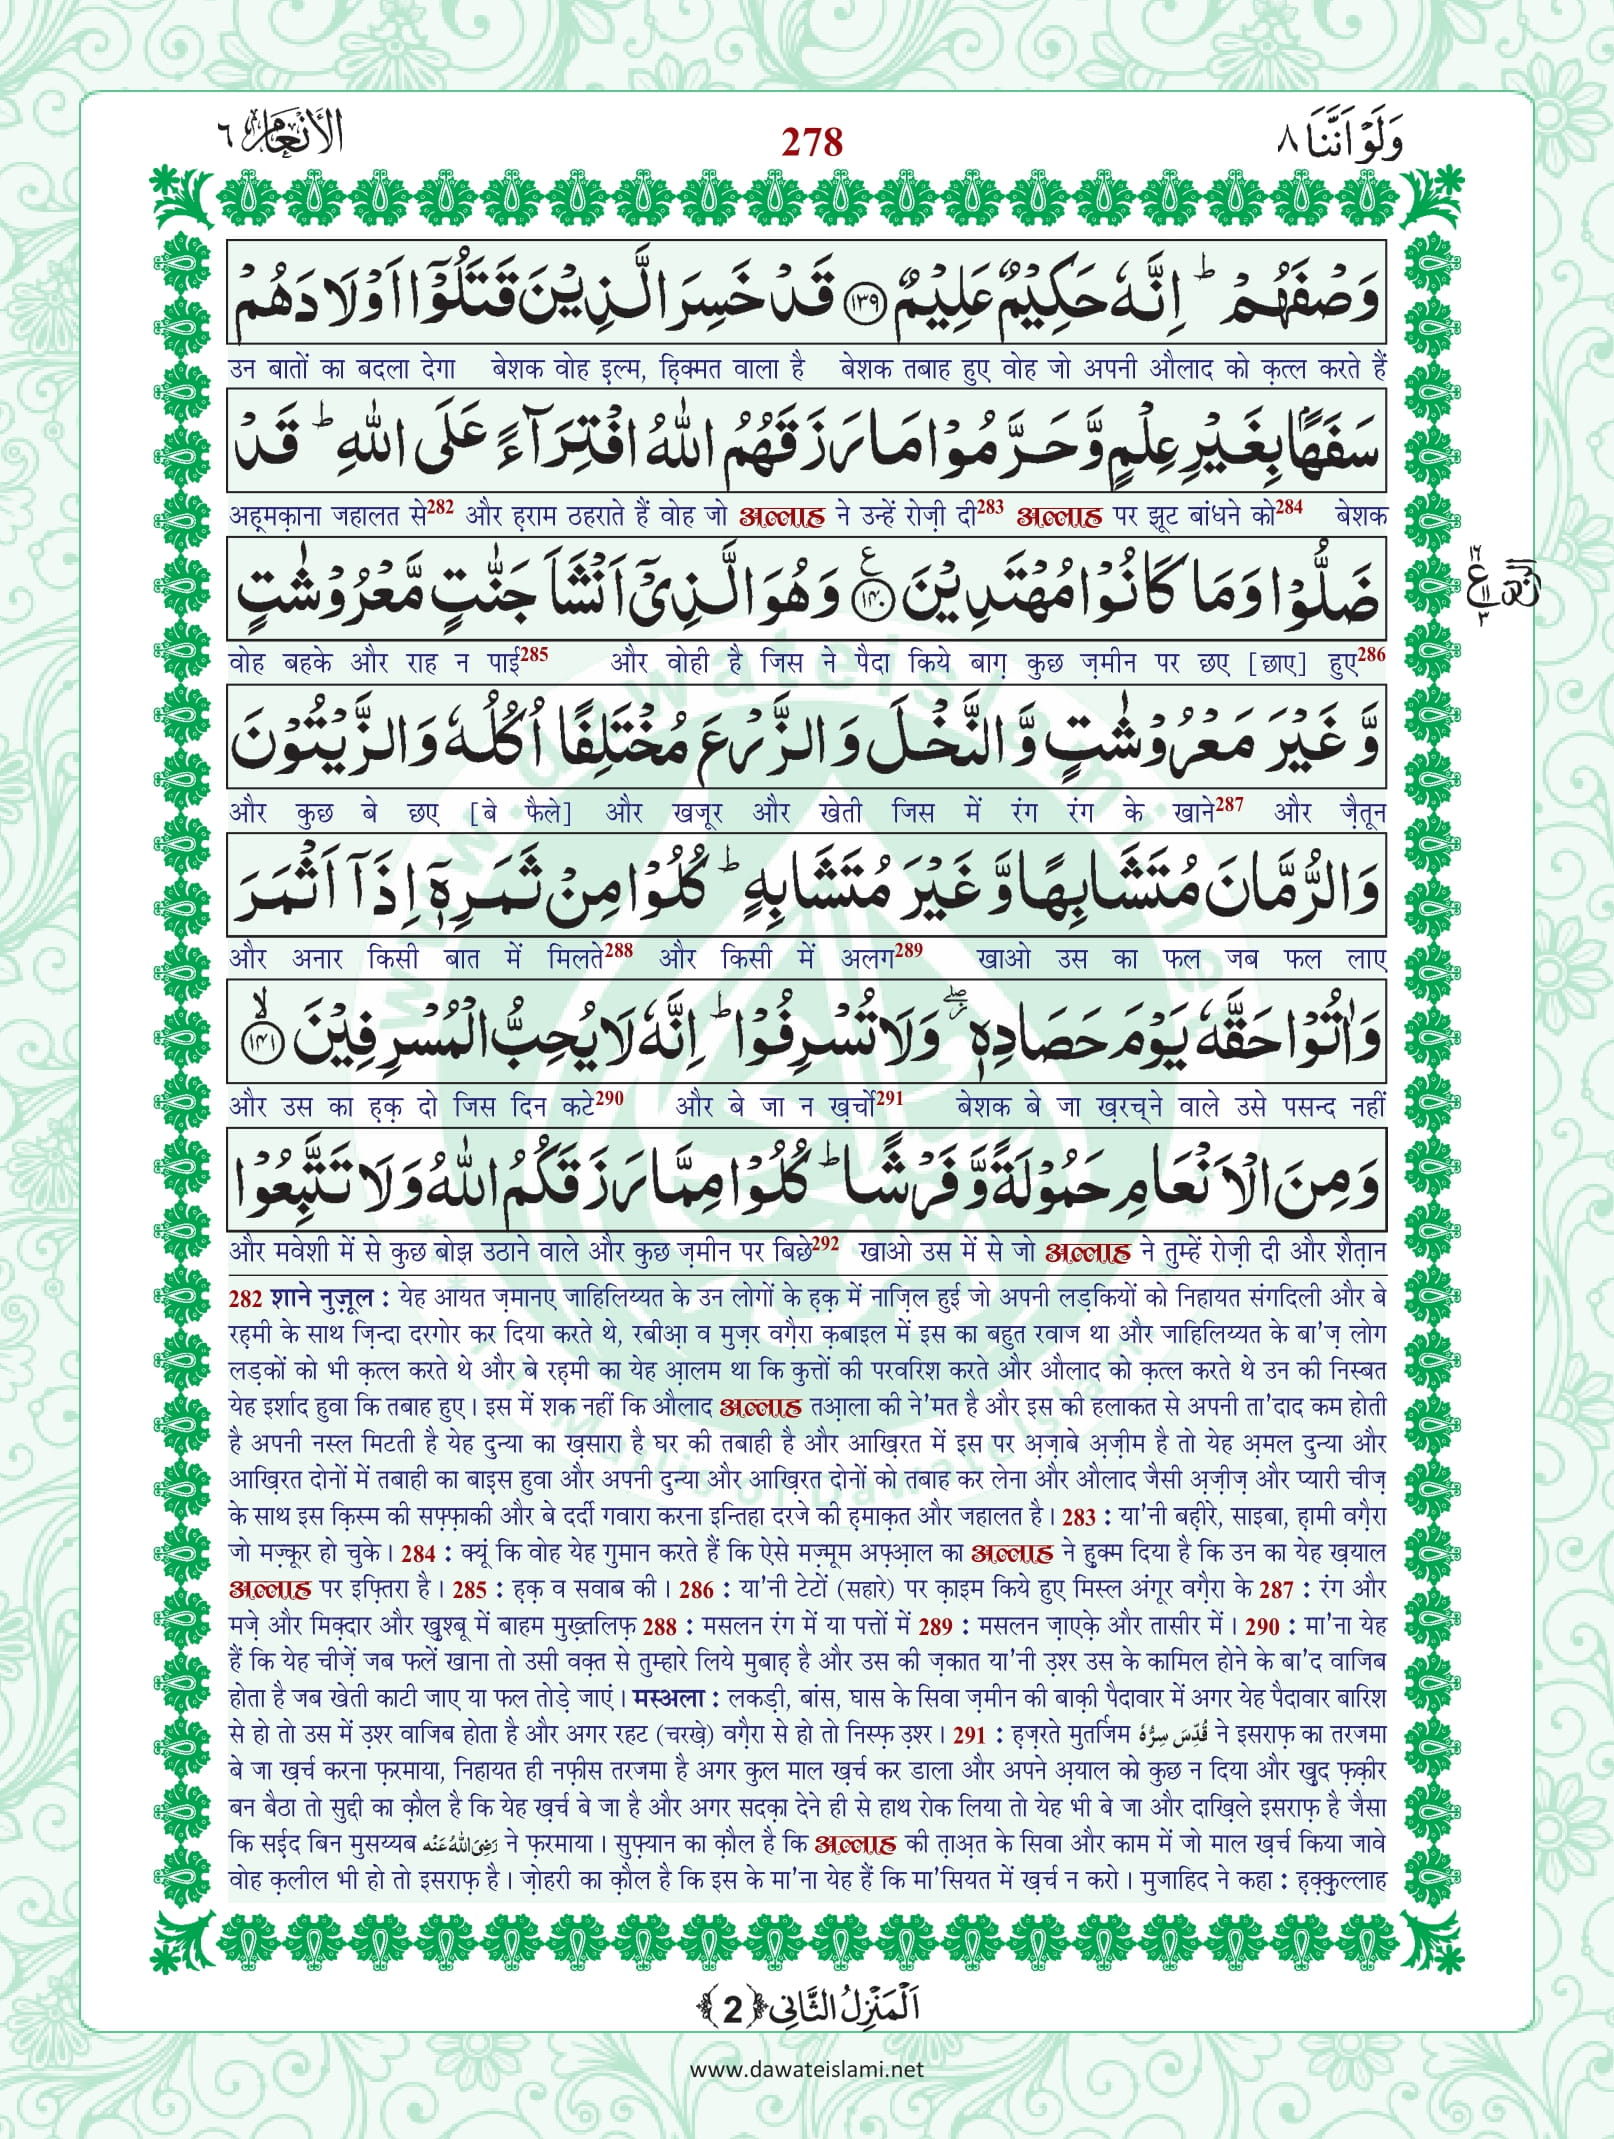 وَلَوْ اَنَّنَا ٨
278
الْاَنْعَام ٦
وَصْفَهُمْ ؕ اِنَّهٗ حَكِیْمٌ عَلِیْمٌ ﴿۱۳۹﴾ قَدْ خَسِرَ الَّذِیْنَ قَتَلُوْۤا اَوْلَادَهُمْ
उन बातों का बदला देगा बेशक वोह इल्म, हि़क्मत वाला है बेशक तबाह हुए वोह जो अपनी औलाद को क़त्ल करते हैं
سَفَهًۢا بِغَیْرِ عِلْمٍ وَّ حَرَّمُوْا مَا رَزَقَهُمُ اللّٰهُ افْتِرَآءً عَلَی اللّٰهِ ؕ قَدْ
अह़्मक़ाना जहालत से282 और ह़राम ठहराते हैं वोह जो अल्लाह ने उन्हें रोज़ी दी283 अल्लाह पर झूट बांधने को284 बेशक
ضَلُّوْا وَ مَا كَانُوْا مُهْتَدِیْنَ ﴿۱۴۰﴾ ع وَ هُوَ الَّذِیْۤ اَنْشَاَ جَنّٰتٍ مَّعْرُوْشٰتٍ
वोह बहके और राह न पाई285 और वोही है जिस ने पैदा किये बाग़ कुछ ज़मीन पर छए [छाए] हुए286
وَّ غَیْرَ مَعْرُوْشٰتٍ وَّ النَّخْلَ وَ الزَّرْعَ مُخْتَلِفًا اُكُلُهٗ وَ الزَّیْتُوْنَ
और कुछ बे छए [बे फैले] और खजूर और खेती जिस में रंग रंग के खाने287 और ज़ैतून
وَ الرُّمَّانَ مُتَشَابِهًا وَّ غَیْرَ مُتَشَابِهٍ ؕ كُلُوْا مِنْ ثَمَرِهٖۤ اِذَاۤ اَثْمَرَ
और अनार किसी बात में मिलते288 और किसी में अलग289 खाओ उस का फल जब फल लाए
وَ اٰتُوْا حَقَّهٗ یَوْمَ حَصَادِهٖ ۖ٘ وَ لَا تُسْرِفُوْا ؕ اِنَّهٗ لَا یُحِبُّ الْمُسْرِفِیْنَ ﴿۱۴۱﴾ ۙ
और उस का ह़क़ दो जिस दिन कटे290 और बे जा न ख़र्चो291 बेशक बे जा ख़रच्ने वाले उसे पसन्द नहीं
وَ مِنَ الْاَنْعَامِ حَمُوْلَةً وَّ فَرْشًا ؕ كُلُوْا مِمَّا رَزَقَكُمُ اللّٰهُ وَ لَا تَتَّبِعُوْا
और मवेशी में से कुछ बोझ उठाने वाले और कुछ ज़मीन पर बिछे292 खाओ उस में से जो अल्लाह ने तुम्हें रोज़ी दी और शैत़ान
282 शाने नुज़ूल : येह आयत ज़मानए जाहिलिय्यत के उन लोगों के ह़क़ में नाज़िल हुई जो अपनी लड़कियों को निहायत संगदिली और बे
रह़मी के साथ ज़िन्दा दरगोर कर दिया करते थे, रबीआ़ व मुज़र वग़ैरा क़बाइल में इस का बहुत रवाज था और जाहिलिय्यत के बा'ज़ लोग
लड़कों को भी क़त्ल करते थे और बे रह़मी का येह आ़लम था कि कुत्तों की परवरिश करते और औलाद को क़त्ल करते थे उन की निस्बत
येह इर्शाद हुवा कि तबाह हुए। इस में शक नहीं कि औलाद अल्लाह तआ़ला की ने'मत है और इस की हलाकत से अपनी ता'दाद कम होती
है अपनी नस्ल मिटती है येह दुन्या का ख़सारा है घर की तबाही है और आख़िरत में इस पर अ़ज़ाबे अ़ज़ीम है तो येह अ़मल दुन्या और
आख़िरत दोनों में तबाही का बाइस हुवा और अपनी दुन्या और आख़िरत दोनों को तबाह कर लेना और औलाद जैसी अ़ज़ीज़ और प्यारी चीज़
के साथ इस क़िस्म की सफ़्फ़ाकी और बे दर्दी गवारा करना इन्तिहा दरजे की ह़माक़त और जहालत है। 283 : या'नी बह़ीरे, साइबा, ह़ामी वग़ैरा
जो मज़्कूर हो चुके। 284 : क्यूं कि वोह येह गुमान करते हैं कि ऐसे मज़्मूम अफ़्आ़ल का अल्लाह ने हुक्म दिया है कि उन का येह ख़याल
अल्लाह पर इफ़्तिरा है। 285 : ह़क़ व सवाब की। 286 : या'नी टेटों (सहारे) पर क़ाइम किये हुए मिस्ल अंगूर वग़ैरा के 287 : रंग और
मज़े और मिक़्दार और खुश्बू में बाहम मुख़्तलिफ़ 288 : मसलन रंग में या पत्तों में 289 : मसलन ज़ाएक़े और तासीर में। 290 : मा'ना येह
हैं कि येह चीज़ें जब फलें खाना तो उसी वक़्त से तुम्हारे लिये मुबाह़ है और उस की ज़कात या'नी उ़श्र उस के कामिल होने के बा'द वाजिब
होता है जब खेती काटी जाए या फल तोड़े जाएं। मस्अला : लकड़ी, बांस, घास के सिवा ज़मीन की बाक़ी पैदावार में अगर येह पैदावार बारिश
से हो तो उस में उ़श्र वाजिब होता है और अगर रहट (चरखे़) वग़ैरा से हो तो निस्फ़ उ़श्र। 291 : ह़ज़रते मुतर्जिम قُدِّسَ سِرُّهٗ ने इसराफ़ का तरजमा
बे जा ख़र्च करना फ़रमाया, निहायत ही नफ़ीस तरजमा है अगर कुल माल ख़र्च कर डाला और अपने अ़याल को कुछ न दिया और खुद फ़क़ीर
बन बैठा तो सुद्दी का क़ौल है कि येह ख़र्च बे जा है और अगर सदक़ा देने ही से हाथ रोक लिया तो येह भी बे जा और दाख़िले इसराफ़ है जैसा
कि सई़द बिन मुसय्यब رَضِیَ اللّٰهُ عَنْه ने फ़रमाया। सुफ़्यान का क़ौल है कि अल्लाह की त़ाअ़त के सिवा और काम में जो माल ख़र्च किया जावे
वोह क़लील भी हो तो इसराफ़ है। ज़ोहरी का क़ौल है कि इस के मा'ना येह हैं कि मा'सियत में ख़र्च न करो। मुजाहिद ने कहा : ह़क़्कुल्लाह
اَلْمَنْزِلُ الثَّانِی ﴿2﴾
www.dawateislami.net